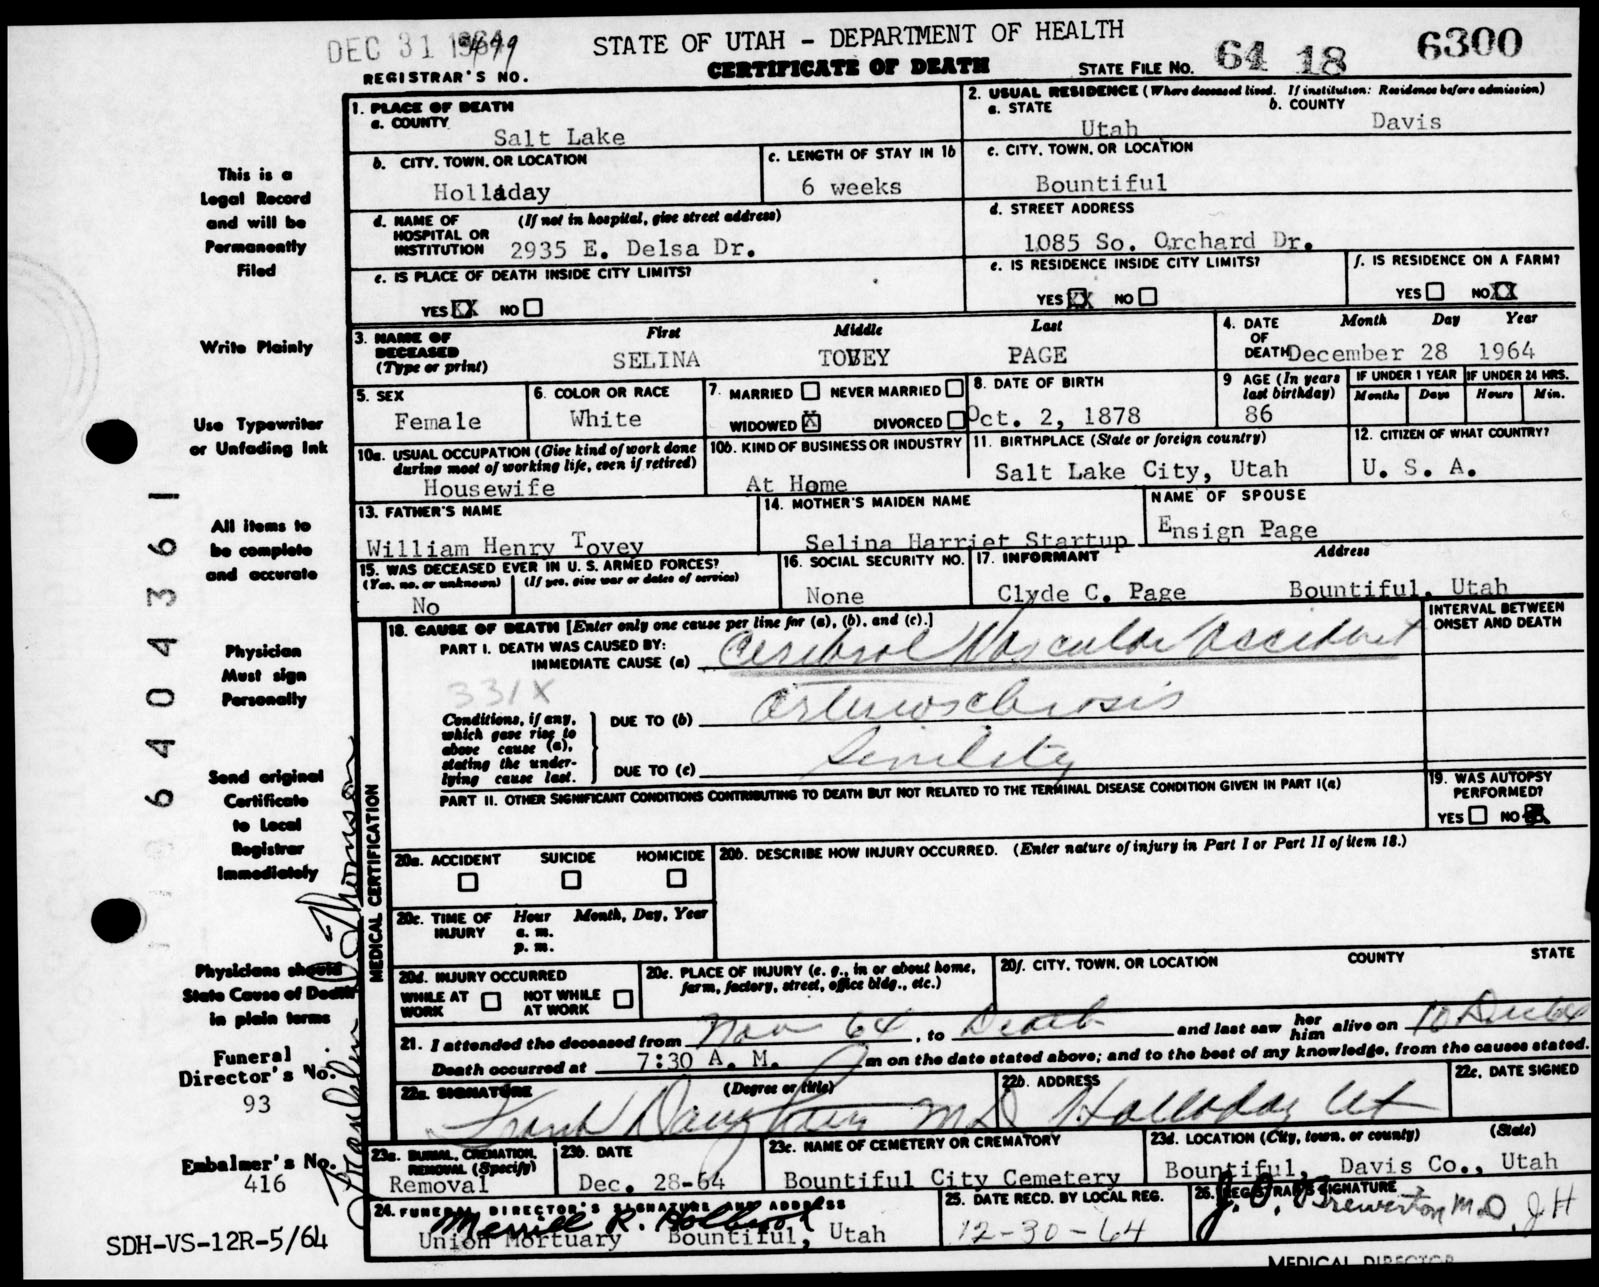 DEC 31 1964
STATE OF UTAH - DEPARTMENT OF HEALTH
REGISTRAR'S NO.
CERTIFICATE OF DEATH
STATE FILE NO. 64 18 6300
1. PLACE OF DEATH
a. COUNTY
Salt Lake
2. USUAL RESIDENCE (Where deceased lived. If institution: Residence before admission)
a. STATE
Utah
b. COUNTY
Davis
b. CITY, TOWN, OR LOCATION
Holladay
c. LENGTH OF STAY IN 1b
6 weeks
c. CITY, TOWN, OR LOCATION
Bountiful
d. NAME OF HOSPITAL OR INSTITUTION
(If not in hospital, give street address)
2935 E. Delsa Dr.
d. STREET ADDRESS
1085 So. Orchard Dr.
e. IS PLACE OF DEATH INSIDE CITY LIMITS?
YES XX NO
e. IS RESIDENCE INSIDE CITY LIMITS?
YES XX NO
f. IS RESIDENCE ON A FARM?
YES NO XX
3. NAME OF DECEASED
(Type or print)
First Middle Last
SELINA TOVEY PAGE
4. DATE OF DEATH
Month Day Year
December 28 1964
5. SEX
Female
6. COLOR OR RACE
White
7. MARRIED NEVER MARRIED
WIDOWED X DIVORCED
8. DATE OF BIRTH
Oct. 2, 1878
9 AGE (In years last birthday)
86
IF UNDER 1 YEAR
Months Days
IF UNDER 24 HRS.
Hours Min.
10a. USUAL OCCUPATION (Give kind of work done during most of working life, even if retired)
Housewife
10b. KIND OF BUSINESS OR INDUSTRY
At Home
11. BIRTHPLACE (State or foreign country)
Salt Lake City, Utah
12. CITIZEN OF WHAT COUNTRY?
U. S. A.
13. FATHER'S NAME
William Henry Tovey
14. MOTHER'S MAIDEN NAME
Selina Harriet Startup
NAME OF SPOUSE
Ensign Page
15. WAS DECEASED EVER IN U. S. ARMED FORCES?
(Yes, no, or unknown) (If yes, give war or dates of service)
No
16. SOCIAL SECURITY NO.
None
17. INFORMANT Address
Clyde C. Page Bountiful, Utah
18. CAUSE OF DEATH [Enter only one cause per line for (a), (b), and (c).]
PART I. DEATH WAS CAUSED BY:
IMMEDIATE CAUSE (a) Cerebral Vascular Accident
331X
Conditions, if any, which gave rise to above cause (a), stating the underlying cause last.
DUE TO (b) Arteriosclerosis
DUE TO (c) Senility
INTERVAL BETWEEN ONSET AND DEATH
PART II. OTHER SIGNIFICANT CONDITIONS CONTRIBUTING TO DEATH BUT NOT RELATED TO THE TERMINAL DISEASE CONDITION GIVEN IN PART I(a)
19. WAS AUTOPSY PERFORMED?
YES NO
MEDICAL CERTIFICATION
20a. ACCIDENT SUICIDE HOMICIDE
20b. DESCRIBE HOW INJURY OCCURRED. (Enter nature of injury in Part I or Part II of item 18.)
20c. TIME OF INJURY
Hour Month, Day, Year
a. m.
p. m.
20d. INJURY OCCURRED
WHILE AT WORK NOT WHILE AT WORK
20e. PLACE OF INJURY (e. g., in or about home, farm, factory, street, office bldg., etc.)
20f. CITY, TOWN, OR LOCATION COUNTY STATE
21. I attended the deceased from Nov 64, to Death and last saw her him alive on 10 Dec 64
Death occurred at 7:30 A. M. m on the date stated above; and to the best of my knowledge, from the causes stated.
22a. SIGNATURE (Degree or title)
Frank MD
22b. ADDRESS
Holladay Ut
22c. DATE SIGNED
23a. BURIAL, CREMATION, REMOVAL (Specify)
Removal
23b. DATE
Dec. 28-64
23c. NAME OF CEMETERY OR CREMATORY
Bountiful City Cemetery
23d. LOCATION (City, town, or county) (State)
Bountiful, Davis Co., Utah
24. FUNERAL DIRECTOR'S SIGNATURE AND ADDRESS
Merrill R. Holbrook
Union Mortuary Bountiful, Utah
25. DATE RECD. BY LOCAL REG.
12-30-64
26. REGISTRAR'S SIGNATURE
J. H
MEDICAL DIRECTOR
This is a
Legal Record
and will be
Permanently
Filed
Write Plainly
Use Typewriter
or Unfading Ink
All items to
be complete
and accurate
Physician
Must sign
Personally
Send original
Certificate
to Local
Registrar
Immediately
Physicians should
State Cause of Death
in plain terms
Funeral
Director's No.
93
Embalmer's No.
416
SDH-VS-12R-5/64
6404361
Franklin D Thomson